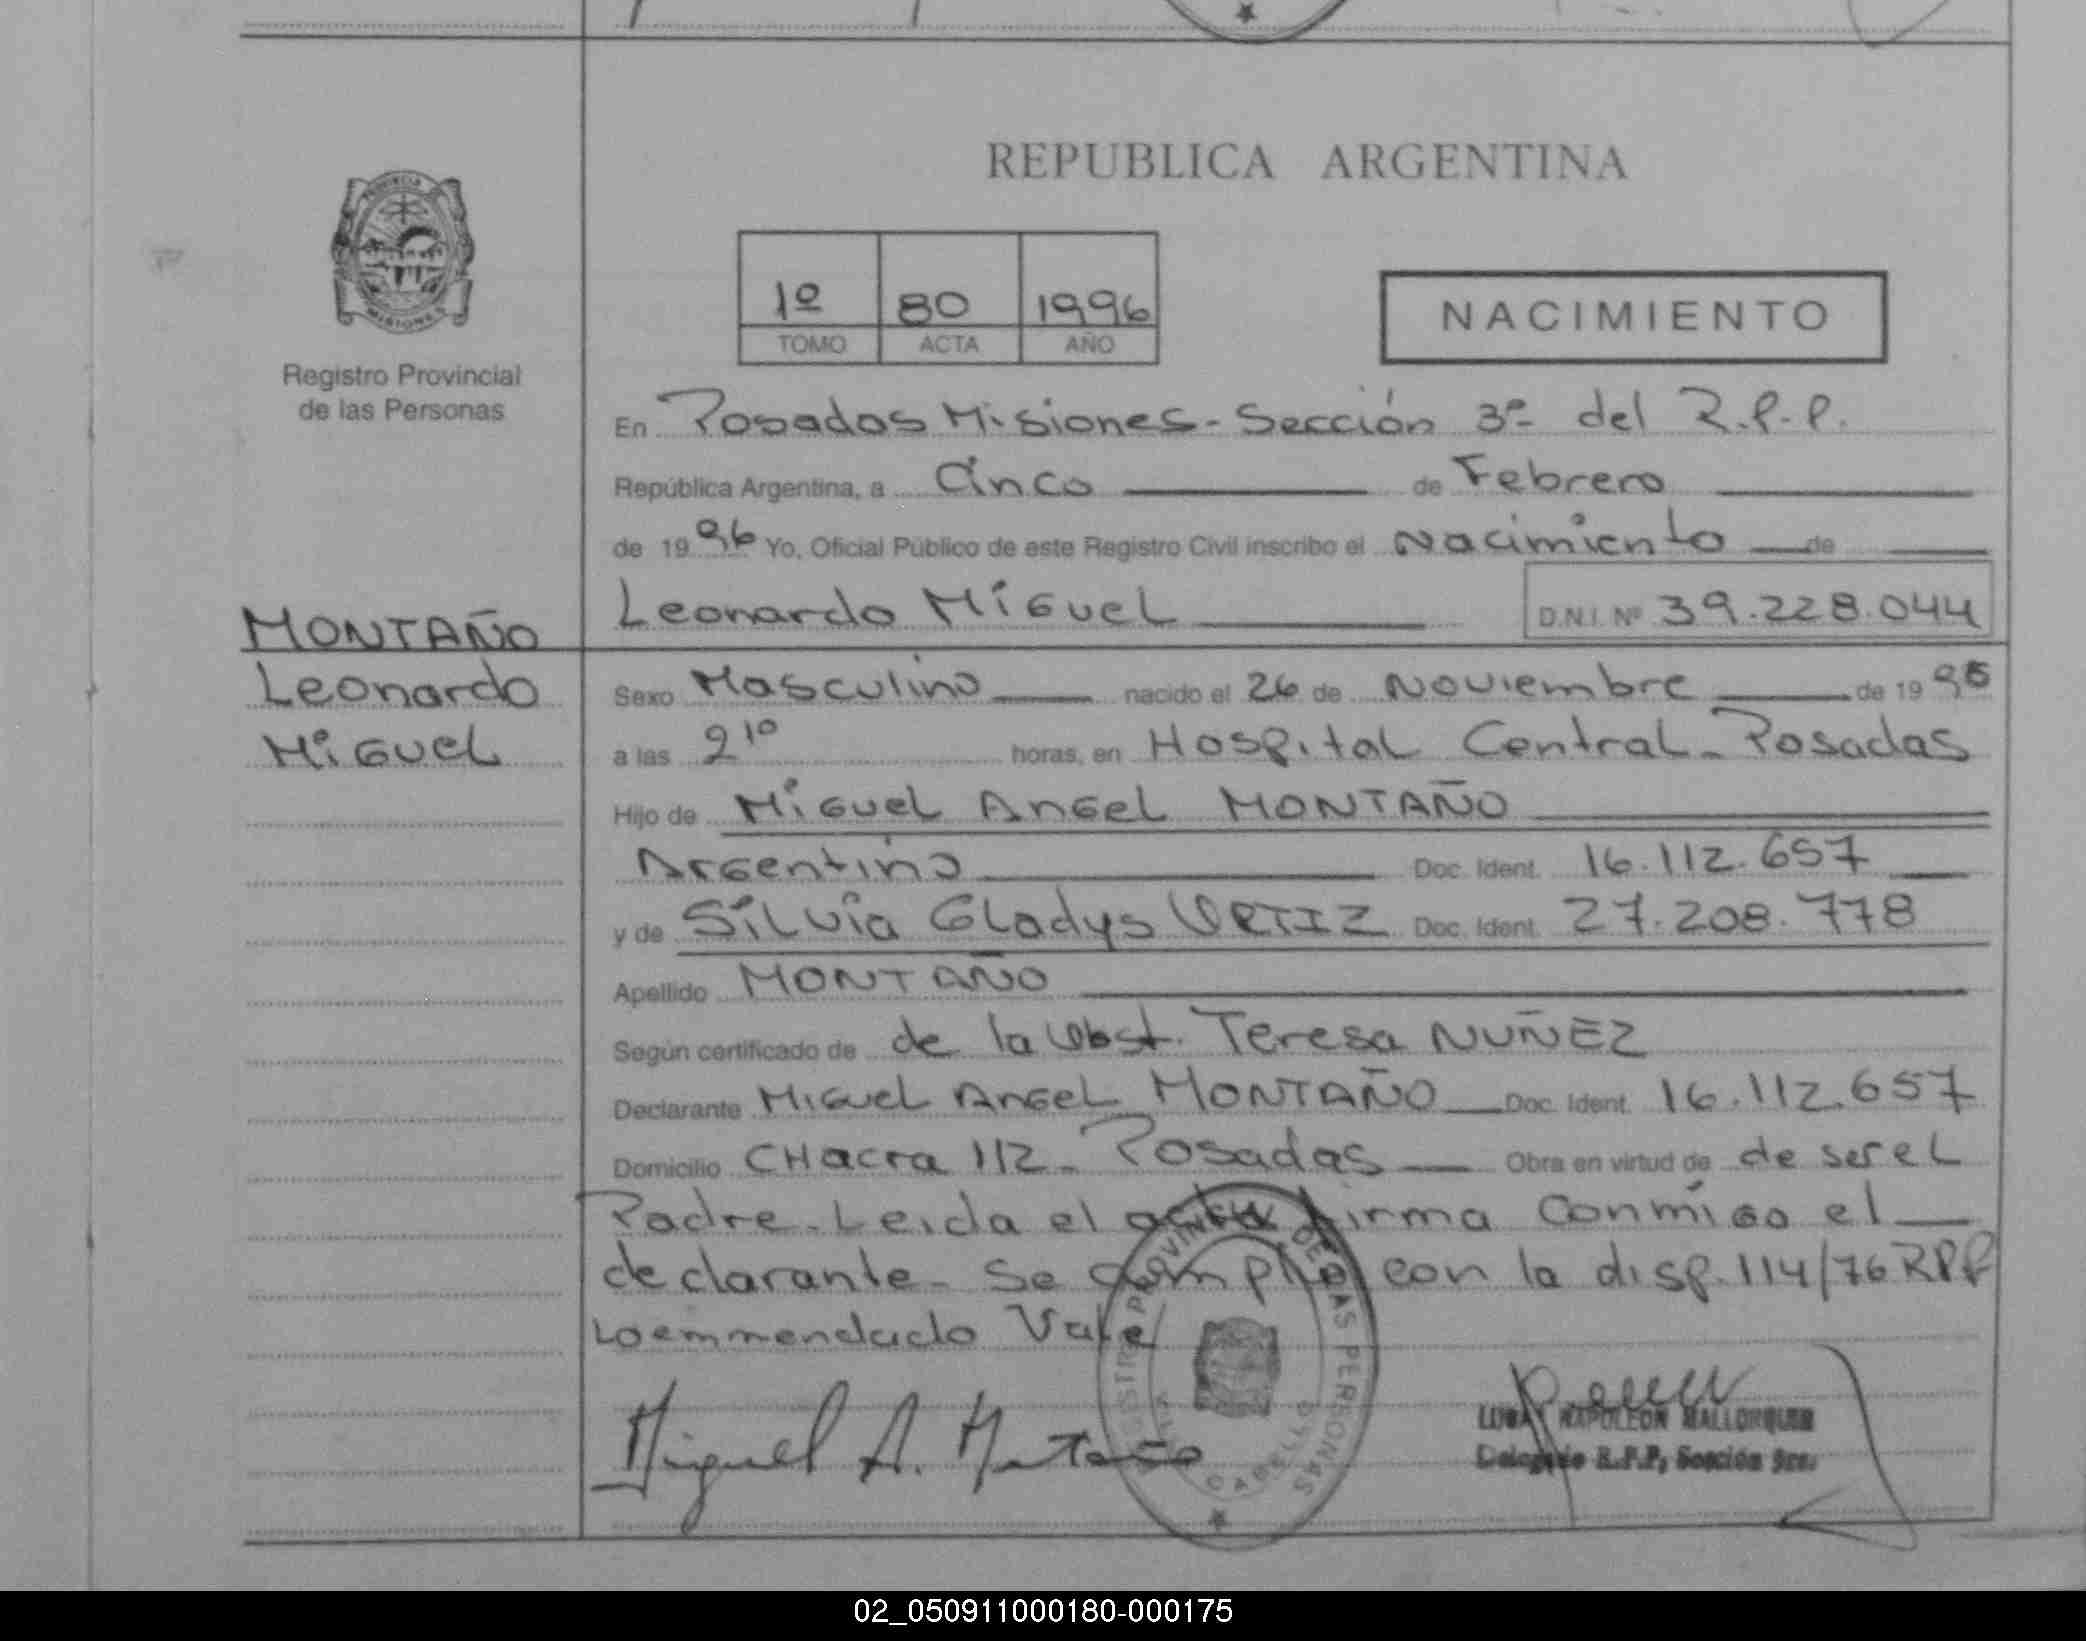 REPUBLICA ARGENTINA
PROVINCIA
MISIONES
Registro Provincial
de las Personas
1º 80 1996
TOMO ACTA AÑO
NACIMIENTO
En Posadas Misiones - Sección 3ª del R.P.P.
República Argentina, a Cinco de Febrero
de 1996 Yo, Oficial Público de este Registro Civil inscribo el Nacimiento de
Leonardo Miguel D.N.I. Nº 39.228.044
MONTAÑO
Leonardo
Miguel
Sexo Masculino nacido el 26 de Noviembre de 1995
a las 2¹⁰ horas, en Hospital Central - Posadas
Hijo de Miguel Angel MONTAÑO
Argentino Doc. Ident. 16.112.657
y de Silvia Gladys ORTIZ Doc. Ident. 27.208.778
Apellido MONTAÑO
Según certificado de de la Obst. Teresa NUÑEZ
Declarante Miguel Angel MONTAÑO Doc. Ident. 16.112.657
Domicilio CHacra 112 - Posadas Obra en virtud de de ser el
Padre. Leida el acta firma Conmigo el
declarante - Se cumplió con la disp. 114/76 RPP
Loemmendado Vale
Miguel A. Montaño
REGISTRO PROVINCIAL DE LAS PERSONAS
VILLA CABELLO
NAPOLEON MALLORQUIN
Delegado R.P.P, Sección 3ra.
02_050911000180-000175